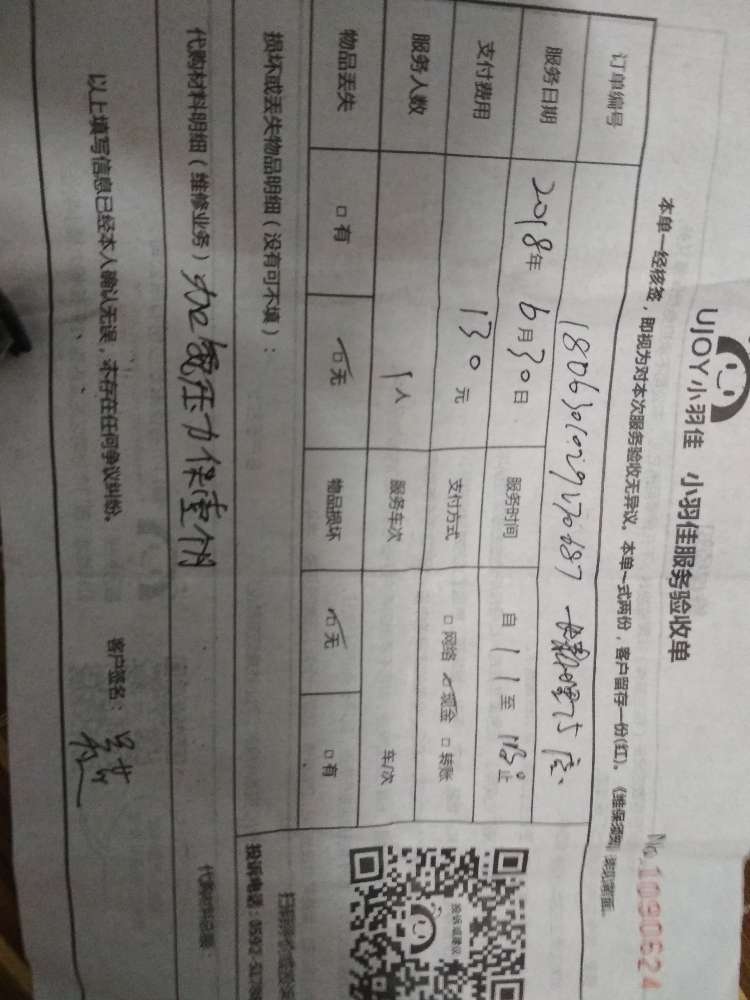 UJOY小羽佳 小羽佳服务验收单
No.1090624
本单一经核签，即视为对本次服务验收无异议。本单一式两份，客户留存一份(红)。《维保须知
订单编号
服务日期 2018年 6月30日 服务时间 自 11 至 止
支付费用 130元 支付方式 □网络 ☑现金 □转账
服务人数 1人 服务车次 车/次
物品丢失 □有 ☑无 物品损坏 ☑无 □有
损坏或丢失物品明细（没有可不填）：
代购材料明细（维修业务） 加氟压力保壹个月
代购材料总额：
以上填写信息已经本人确认无误，未存在任何争议纠纷。 客户签名：
投诉或建议
投诉电话：0592-5178